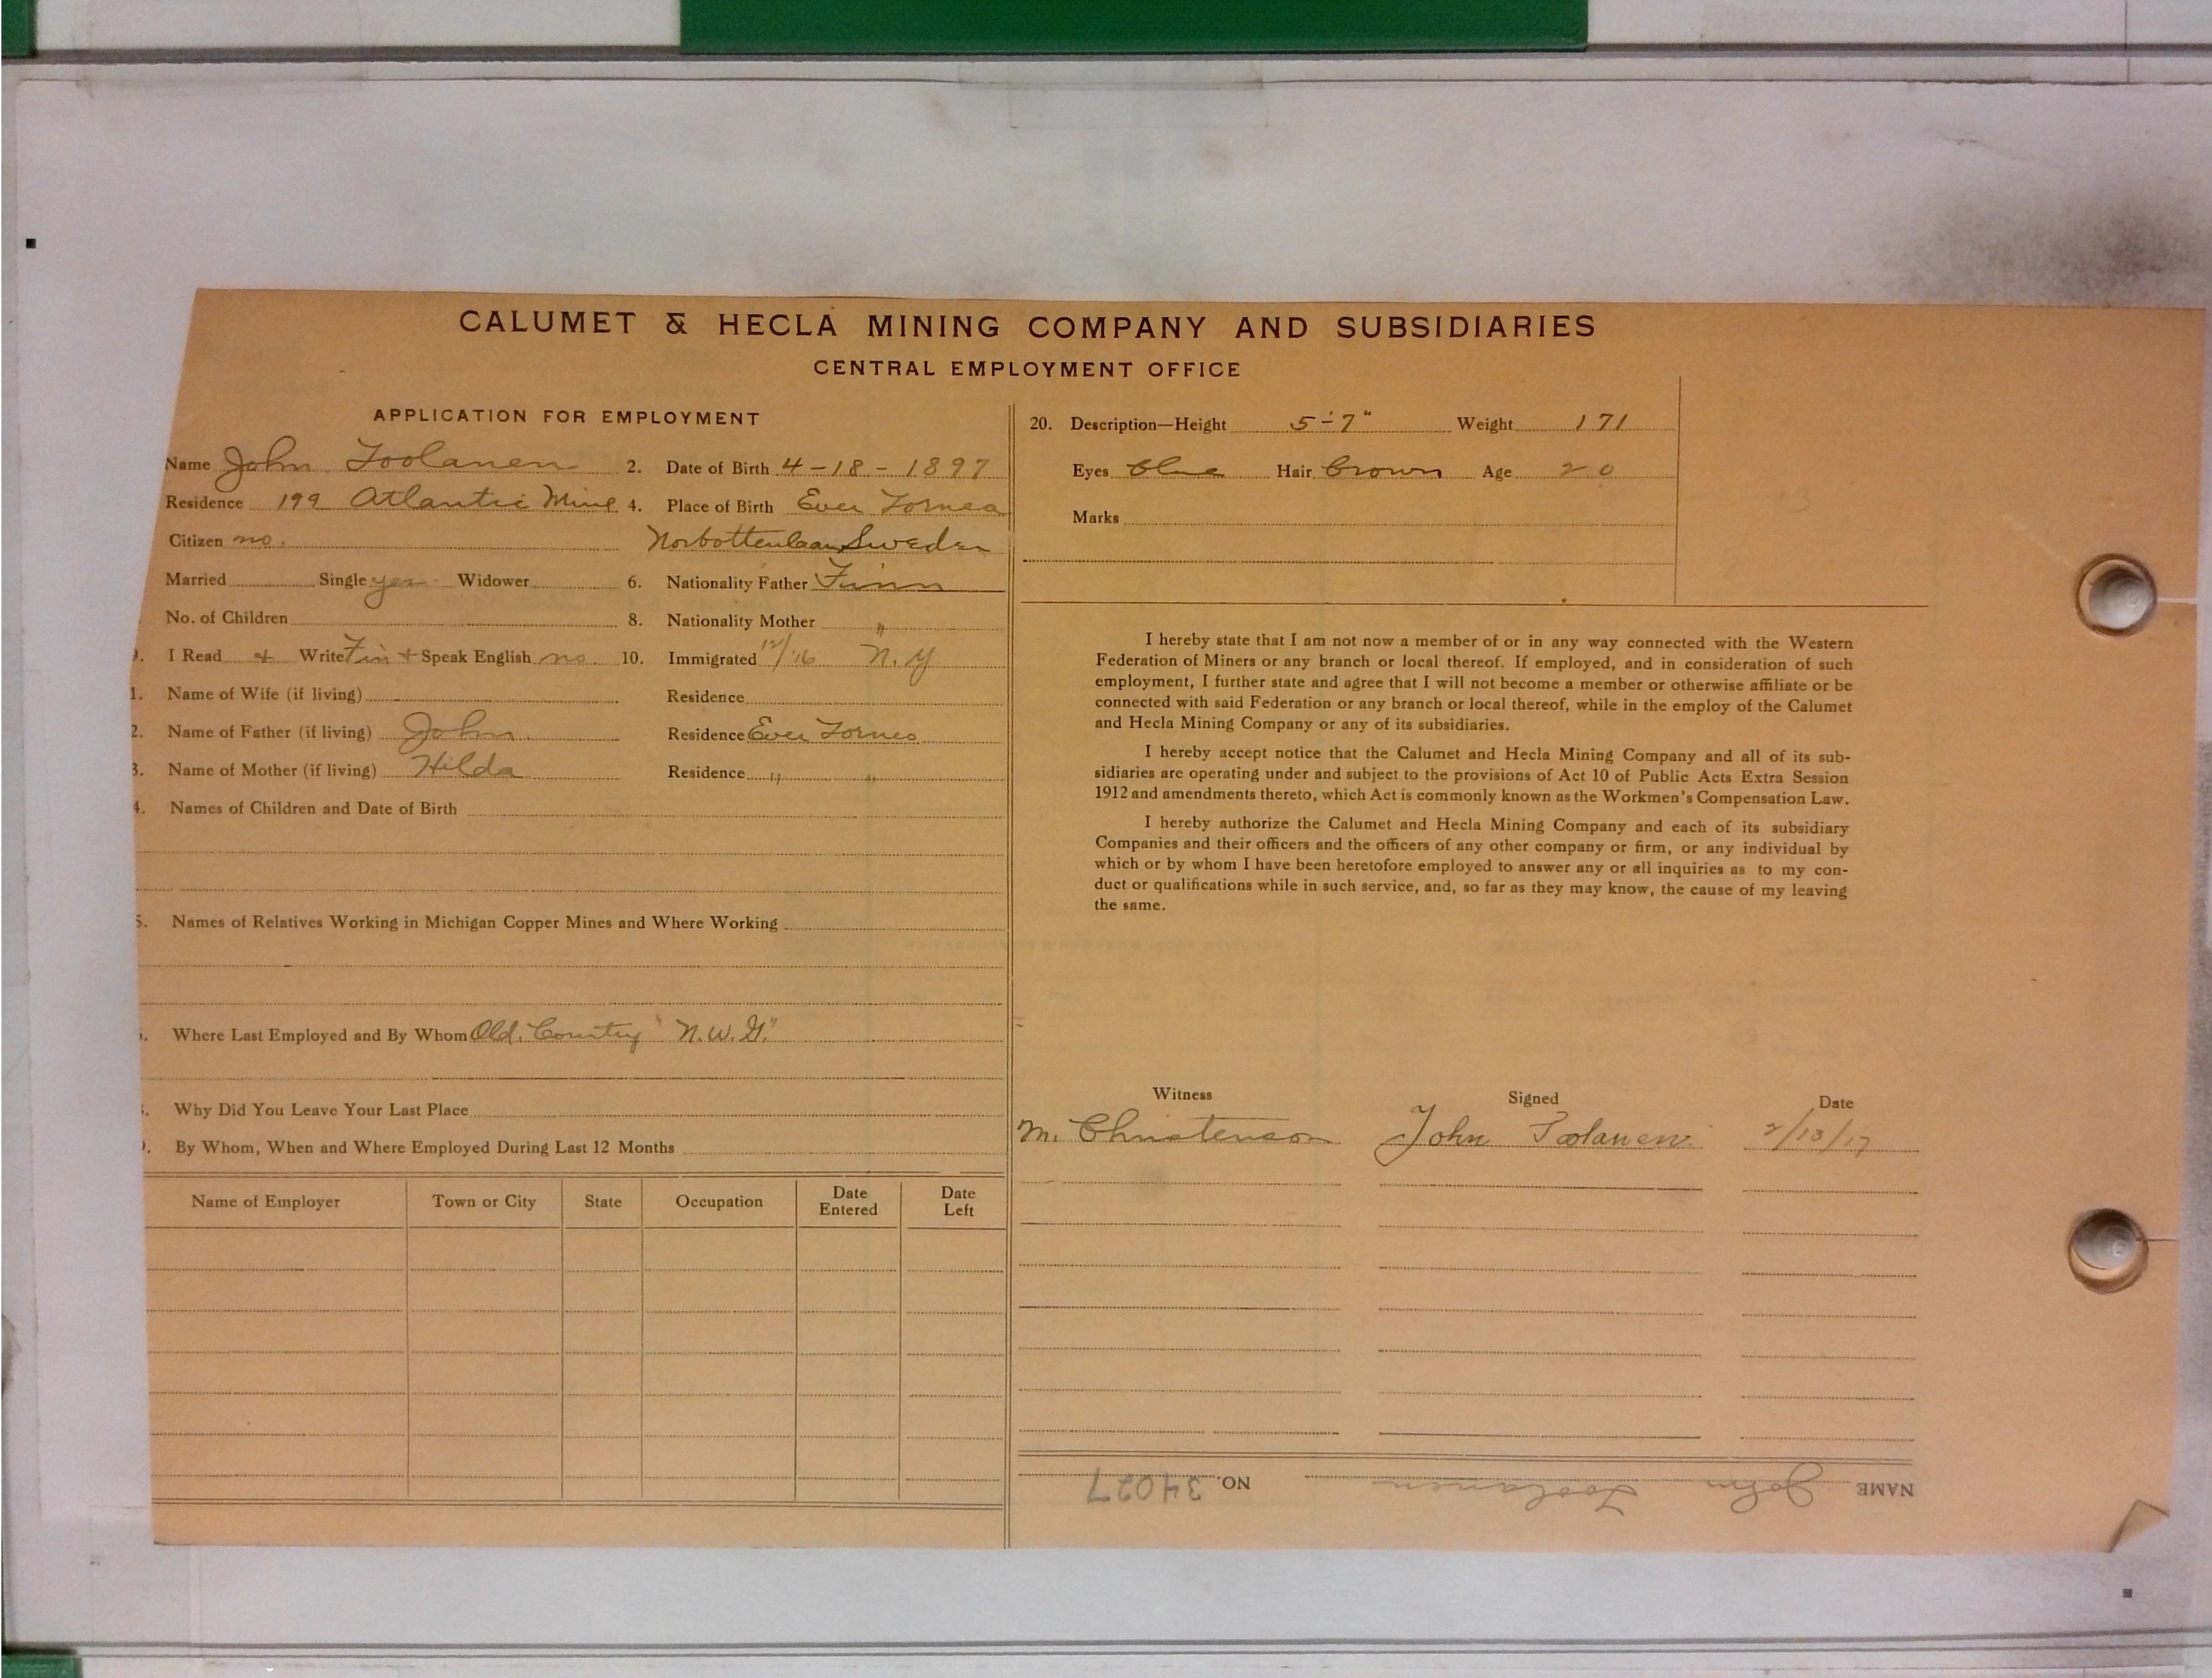 CALUMET & HECLA MINING COMPANY AND SUBSIDIARIES
CENTRAL EMPLOYMENT OFFICE
APPLICATION FOR EMPLOYMENT
Name John Toolanen 2. Date of Birth 4-18-1897
Residence 199 Atlantic Mine 4. Place of Birth Ever Tornea
Citizen no. Norbottenlaan Sweden
Married Single yes Widower 6. Nationality Father Finn
No. of Children 8. Nationality Mother "
9. I Read + Write Fin + Speak English no. 10. Immigrated 12/16 N.Y
1. Name of Wife (if living) Residence
2. Name of Father (if living) John. Residence Ever Torneo
3. Name of Mother (if living) Hilda Residence " "
4. Names of Children and Date of Birth
5. Names of Relatives Working in Michigan Copper Mines and Where Working
Where Last Employed and By Whom Old. Country "N.W.G."
Why Did You Leave Your Last Place
By Whom, When and Where Employed During Last 12 Months
Name of Employer Town or City State Occupation Date Entered Date Left
20. Description—Height 5'-7" Weight 171
Eyes blue Hair brown Age 20
Marks
I hereby state that I am not now a member of or in any way connected with the Western
Federation of Miners or any branch or local thereof. If employed, and in consideration of such
employment, I further state and agree that I will not become a member or otherwise affiliate or be
connected with said Federation or any branch or local thereof, while in the employ of the Calumet
and Hecla Mining Company or any of its subsidiaries.
I hereby accept notice that the Calumet and Hecla Mining Company and all of its sub-
sidiaries are operating under and subject to the provisions of Act 10 of Public Acts Extra Session
1912 and amendments thereto, which Act is commonly known as the Workmen's Compensation Law.
I hereby authorize the Calumet and Hecla Mining Company and each of its subsidiary
Companies and their officers and the officers of any other company or firm, or any individual by
which or by whom I have been heretofore employed to answer any or all inquiries as to my con-
duct or qualifications while in such service, and, so far as they may know, the cause of my leaving
the same.
Witness Signed Date
M. Christenson John Toolanen 2/13/17
NAME John Toolanen NO. 34027